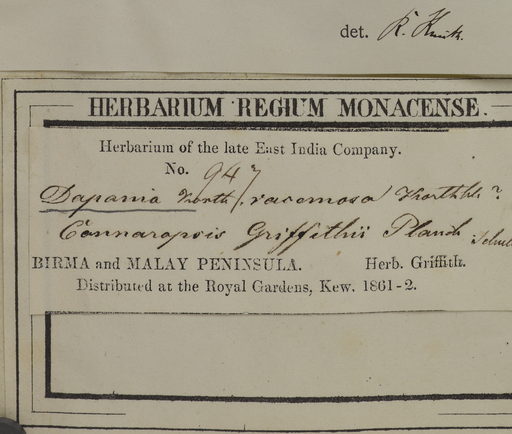 det. R. Knuth.
HERBARIUM REGIUM MONACENSE.
Herbarium of the late East India Company.
No. 947
Dapania Korth. racemosa Korthls ?
Connaropsis Griffithii Planch
BIRMA and MALAY PENINSULA. Herb. Griffith.
Distributed at the Royal Gardens, Kew. 1861-2.